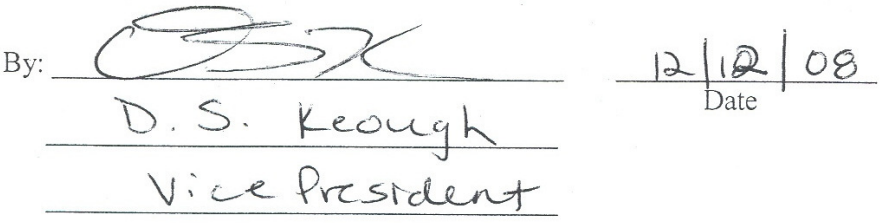 By: 12/12/08
Date
D. S. Keough
Vice President